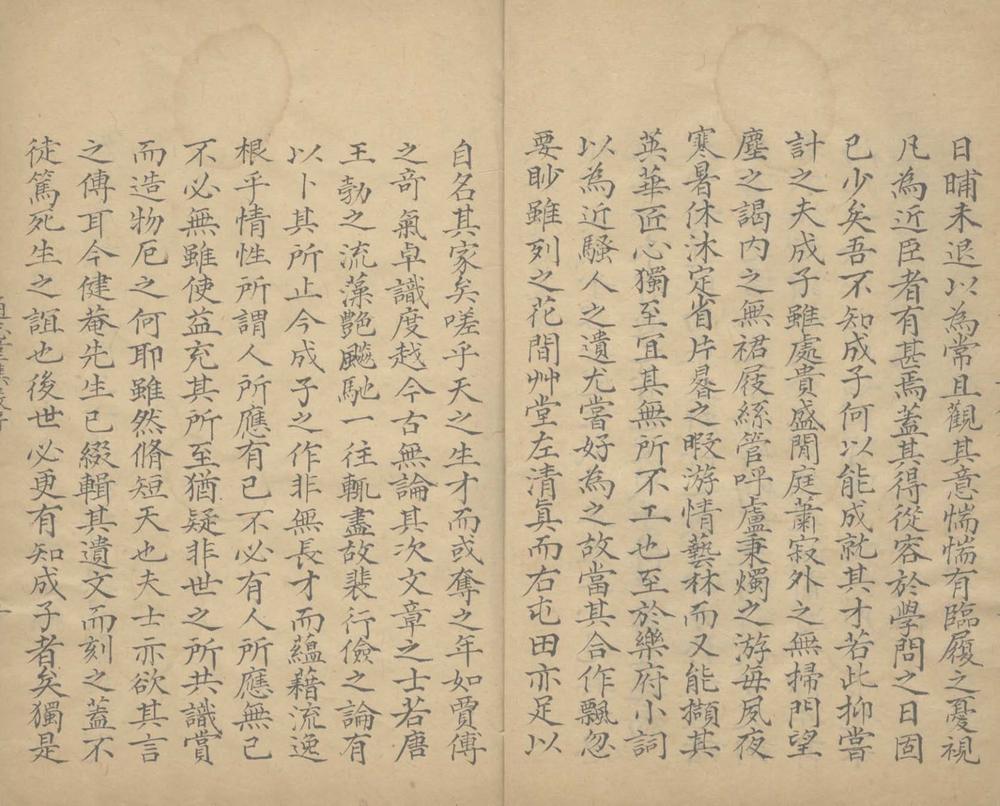 日晡未退以為常且觀其意惴惴有臨履之憂視
凡為近臣者有甚焉蓋其得從容於學問之日固
已少矣吾不知成子何以能成就其才若此抑嘗
計之夫成子雖處貴盛閒庭蕭寂外之無掃門望
塵之謁內之無裙屐絲管呼盧秉燭之游每夙夜
寒暑休沐定省片晷之暇游情藝林而又能擷其
英華匠心獨至宜其無所不工也至於樂府小詞
以為近騷人之遺尤嘗好為之故當其合作飄忽
要眇雖列之花間艸堂左清真而右屯田亦足以
自名其家矣嗟乎天之生才而或奪之年如賈傅
之奇氣卓識度越今古無論其次文章之士若唐
王勃之流藻艷飈馳一往輒盡故裴行儉之論有
以卜其所止今成子之作非無長才而蘊藉流逸
根乎情性所謂人所應有己不必有人所應無己
不必無雖使益充其所至猶疑非世之所共識賞
而造物厄之何耶雖然脩短天也夫士亦欲其言
之傳耳今健菴先生已綴輯其遺文而刻之蓋不
徒篤死生之誼也後世必更有知成子者矣獨是